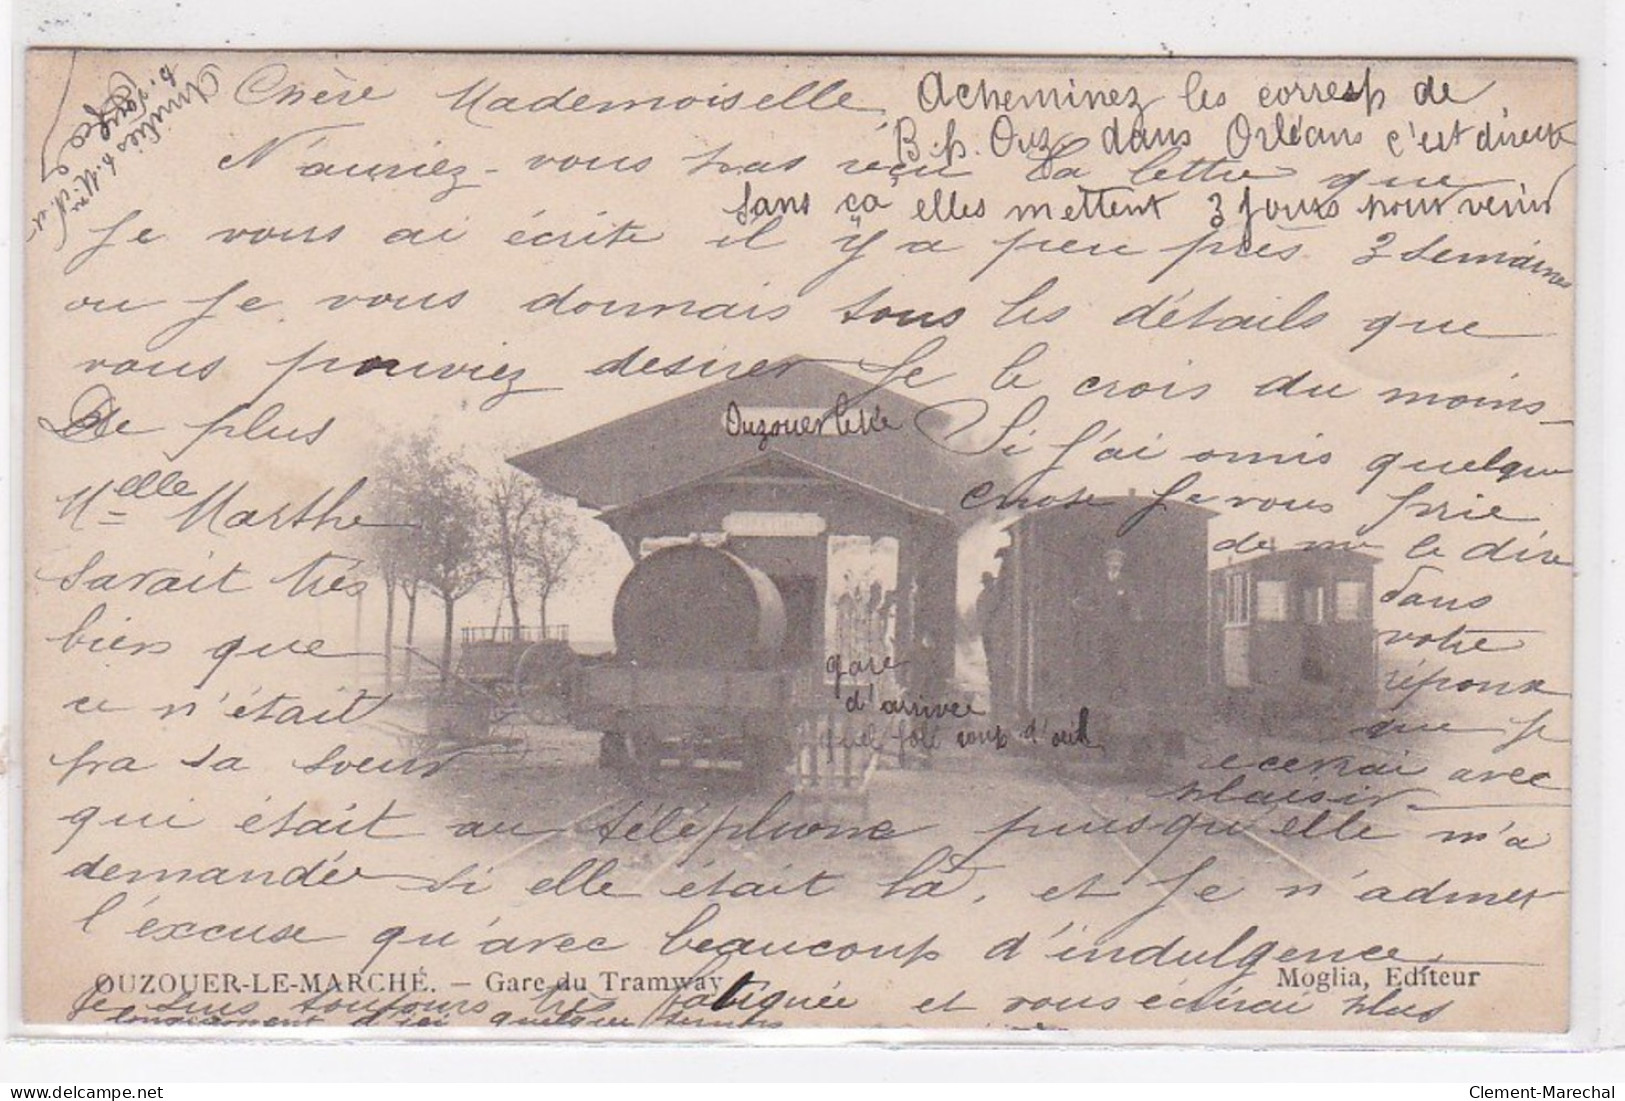 Chère Mademoiselle,
N'auriez-vous pas reçu la lettre que
Je vous ai écrite il y a peu près 3 Semaines
ou Je vous donnais tous les détails que
vous pouviez desirer Je le crois du moins-
Si j'ai omis quelque
chose Je vous prie
de me le dire
dans
votre
réponse
que je
recevrai avec
plaisir
De plus
Melle Marthe
Savait très
bien que
ce n'était
pa sa soeur
qui était au téléphone puisqu'elle m'a
demandée si elle était là, et Je n'admet
l'excuse qu'avec beaucoup d'indulgence.
Je suis toujours très fatiguée et vous écrirai plus
longuement d'ici quelques
Acheminez les corresp de
B.p. Ouz dans Orléans c'est direct
sans ça elles mettent 3 Jours pour venir
Amitiés
Ouzouer
gare
d'arrivée
quel joli coup d'oeil
OUZOUER-LE-MARCHÉ. — Gare du Tramway
Moglia, Editeur
www.delcampe.net
Clement-Marechal